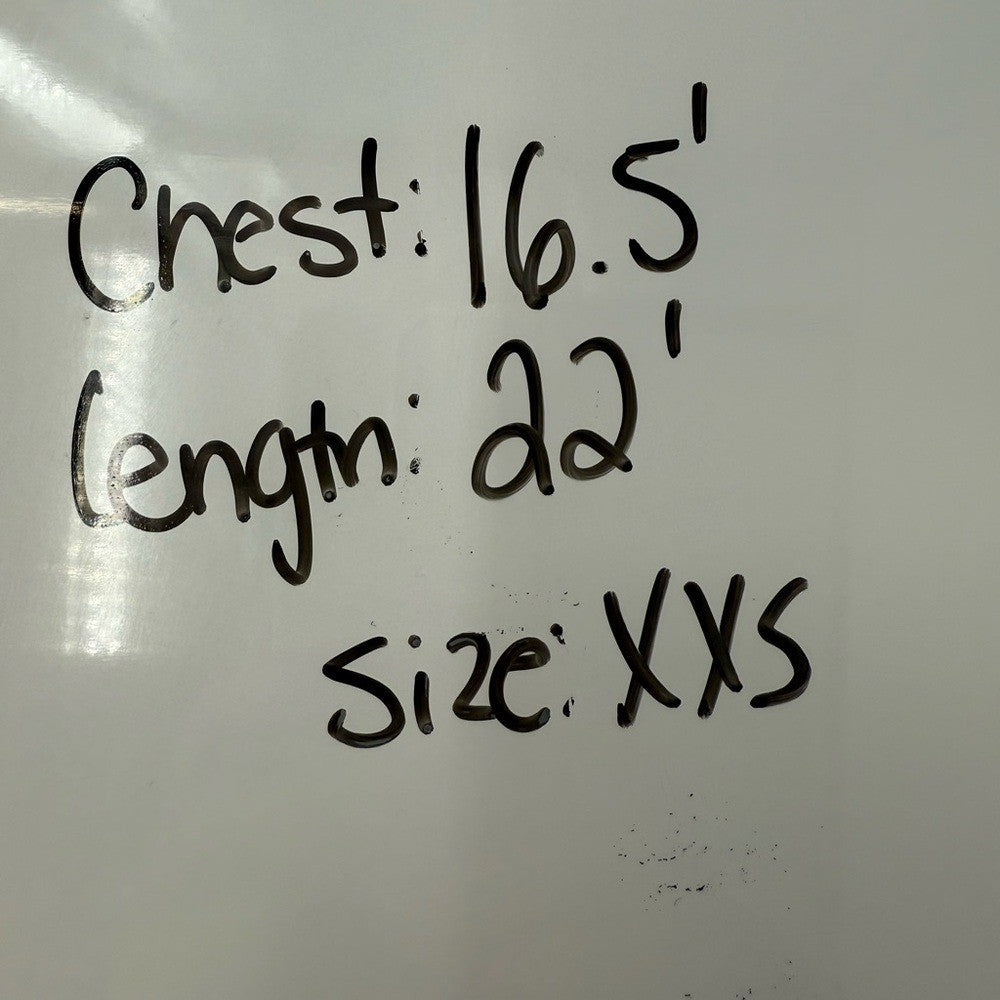 Chest: 16.5'
Length: 22'
Size: XXS